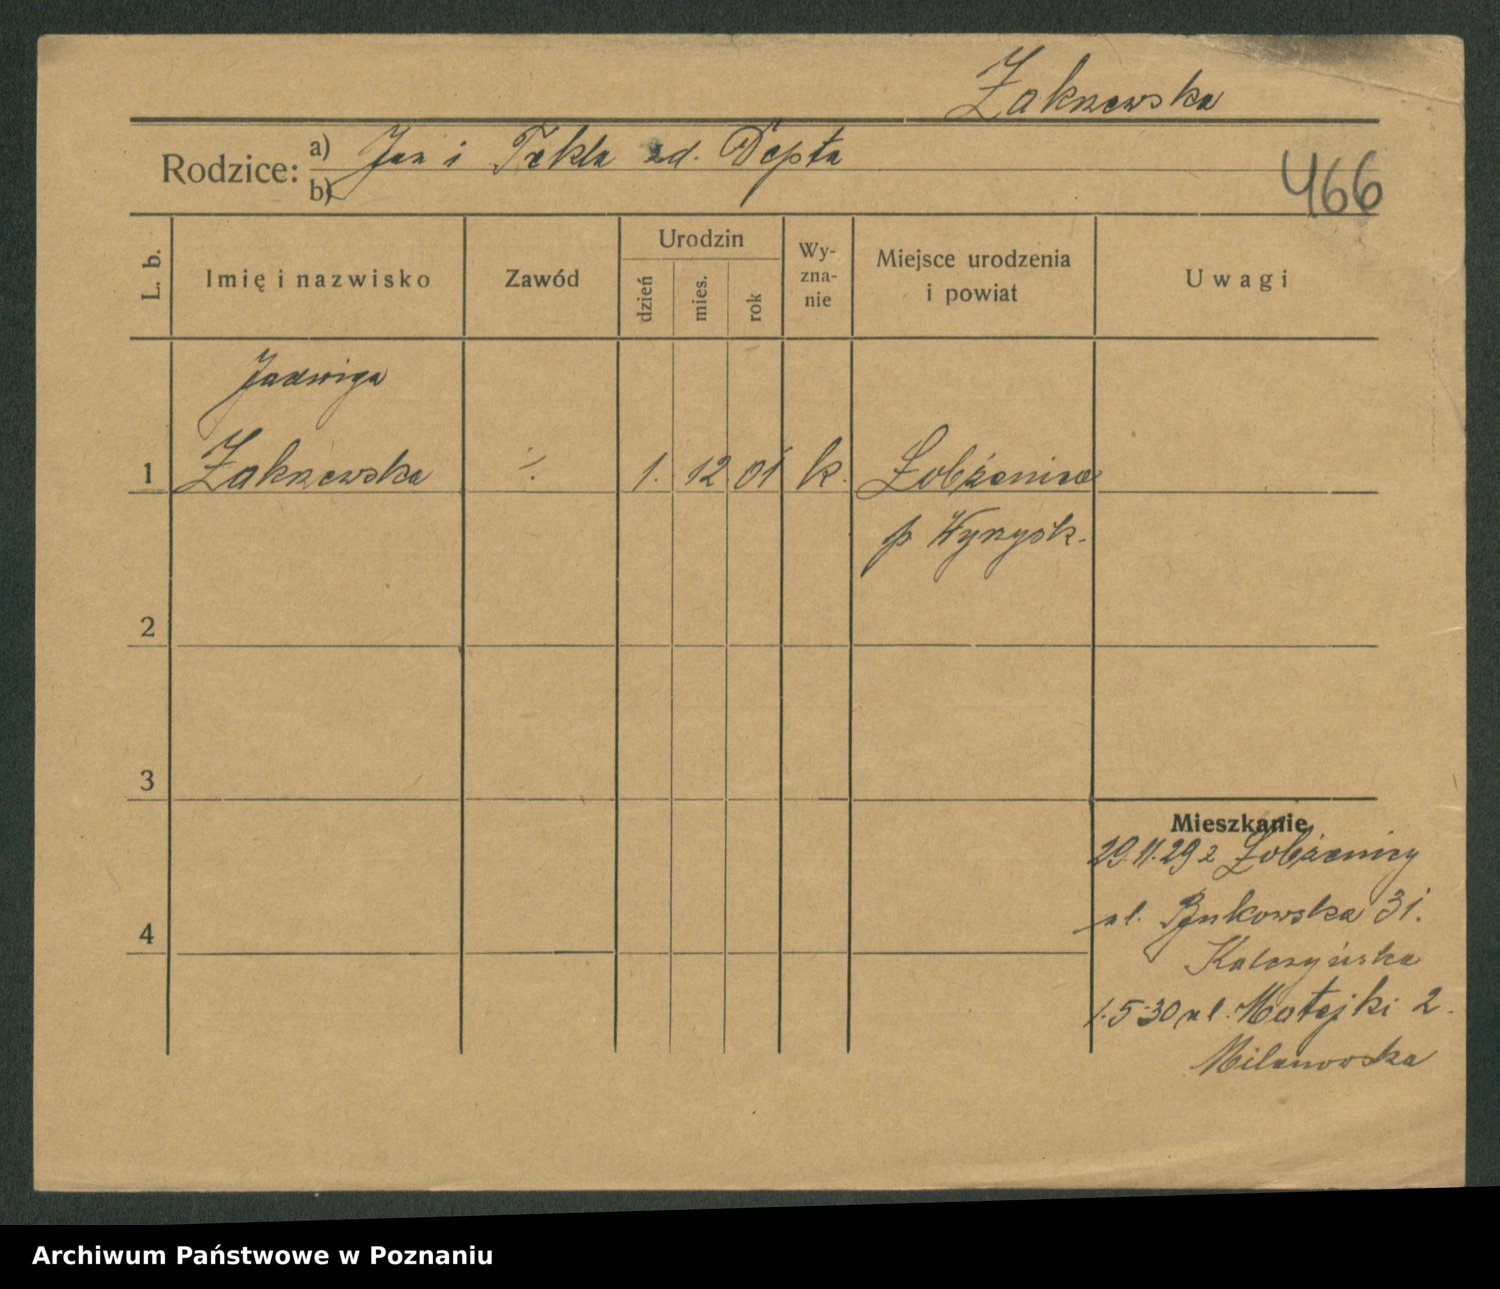 Zakrzewska
Rodzice: a) Jan i Tekla zd. Depta
b)
466
L. b.
Imię i nazwisko
Zawód
Urodzin
dzień
mies.
rok
Wy-
zna-
nie
Miejsce urodzenia
i powiat
Uwagi
Jadwiga
1 Zakrzewska ·/. 1. 12 01 k. Łobżenica
p Wyrzysk.
2
3
Mieszkanie
29.11.29 z Łobżenicy
4 ul. Bukowska 31.
Kalczyńska
1.5.30 ul. Matejki 2.
Milanowska
Archiwum Państwowe w Poznaniu